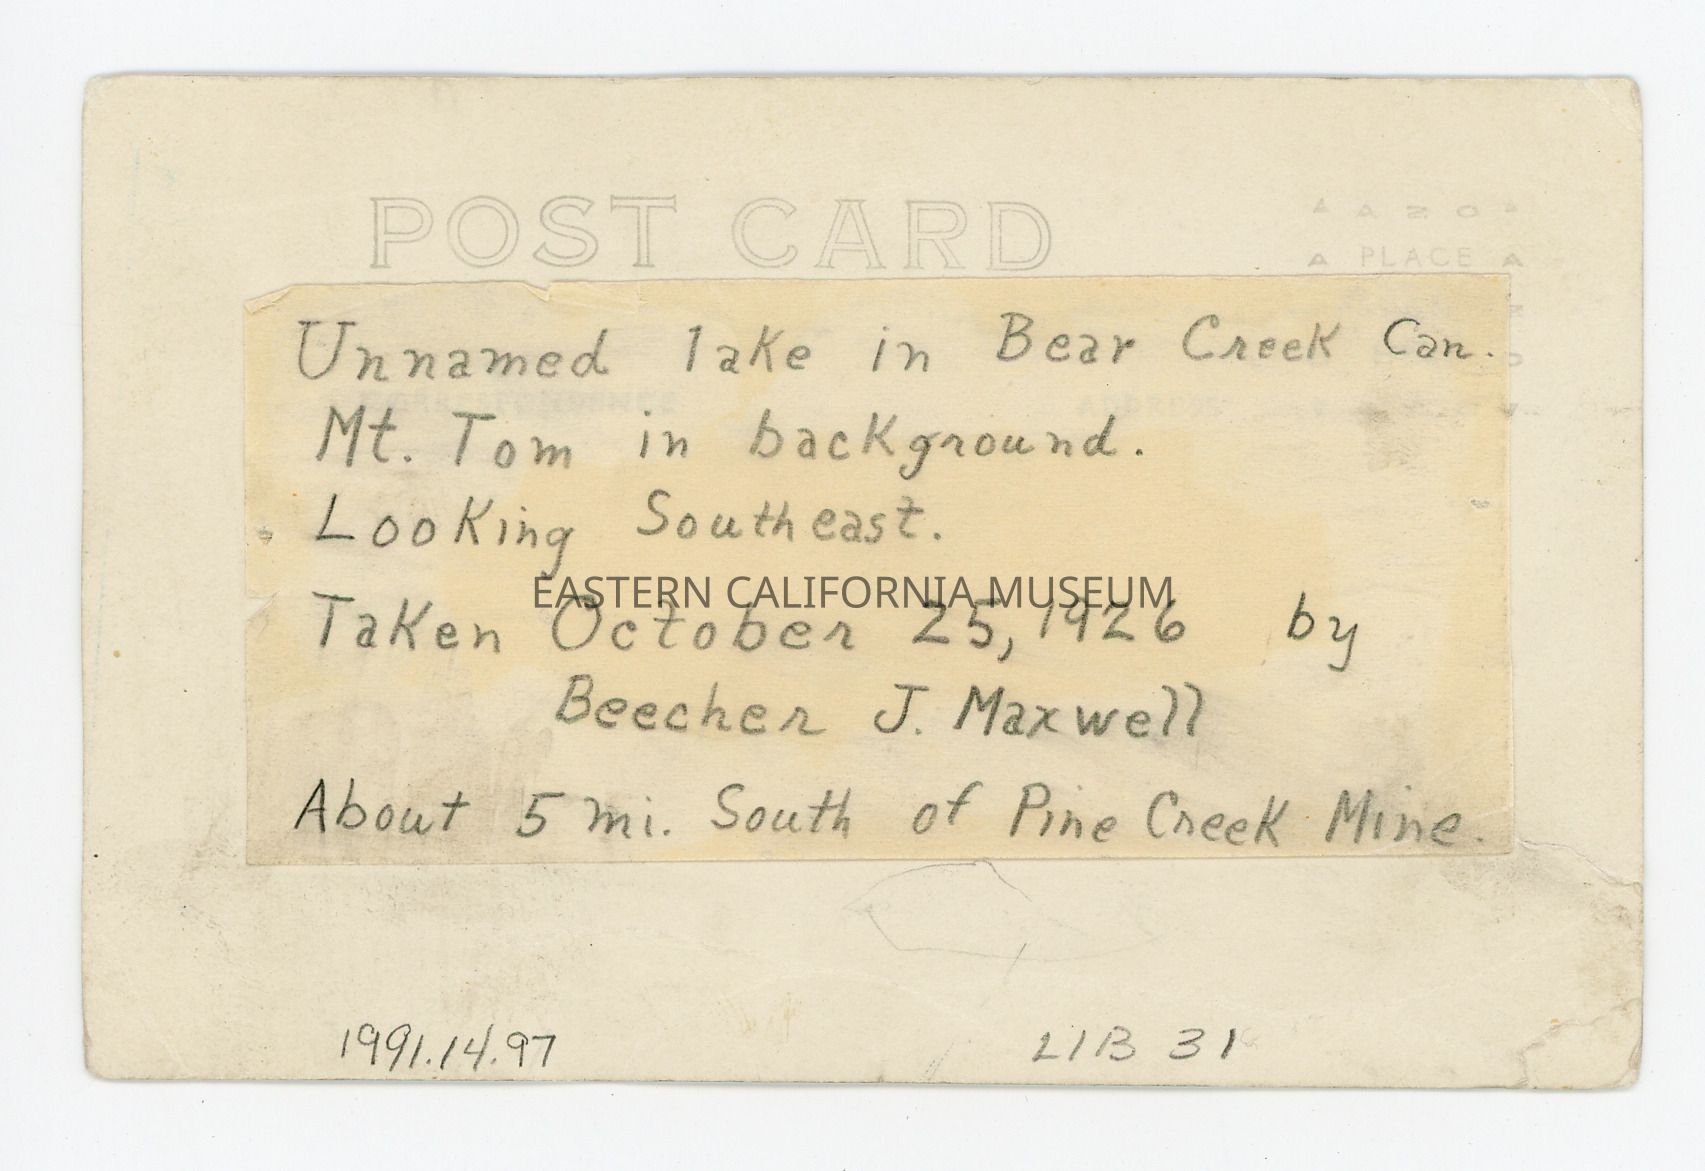 POST CARD
AZO
PLACE
Unnamed lake in Bear Creek Can.
Mt. Tom in background.
Looking Southeast.
EASTERN CALIFORNIA MUSEUM
Taken October 25, 1926 by
Beecher J. Maxwell
About 5 mi. South of Pine Creek Mine.
1991.14.97
LIB 31